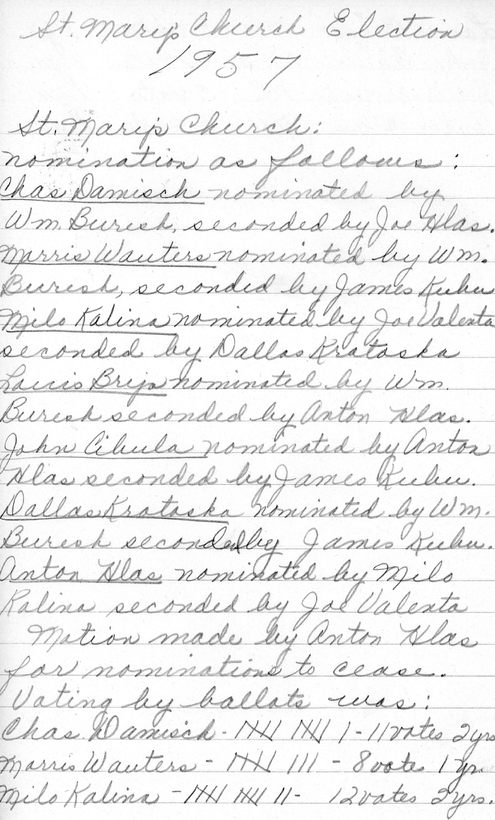 St. Mary's Church Election
1957
St. Mary's Church:
nomination as follows:
Chas Damisch nominated by
Wm. Buresh, seconded by Joe Hlas.
Morris Wauters nominated by Wm.
Buresh, seconded by James Kubu
Milo Kalina nominated by Joe Valenta
seconded by Dallas Krataska
Louis Brija nominated by Wm.
Buresh seconded by Anton Hlas.
John Cibula nominated by Anton
Hlas seconded by James Kubu.
Dallas Krataska nominated by Wm.
Buresh seconded by James Kubu.
Anton Hlas nominated by Milo
Kalina seconded by Joe Valenta
Motion made by Anton Hlas
for nominations to cease.
Voting by ballots was:
Chas. Damisch - 𝍸 𝍸 1 - 11 votes 2 yrs
Morris Wauters - 𝍸 111 - 8 vote 1 yr.
Milo Kalina - 𝍸 𝍸 11 - 12 votes 2 yrs.